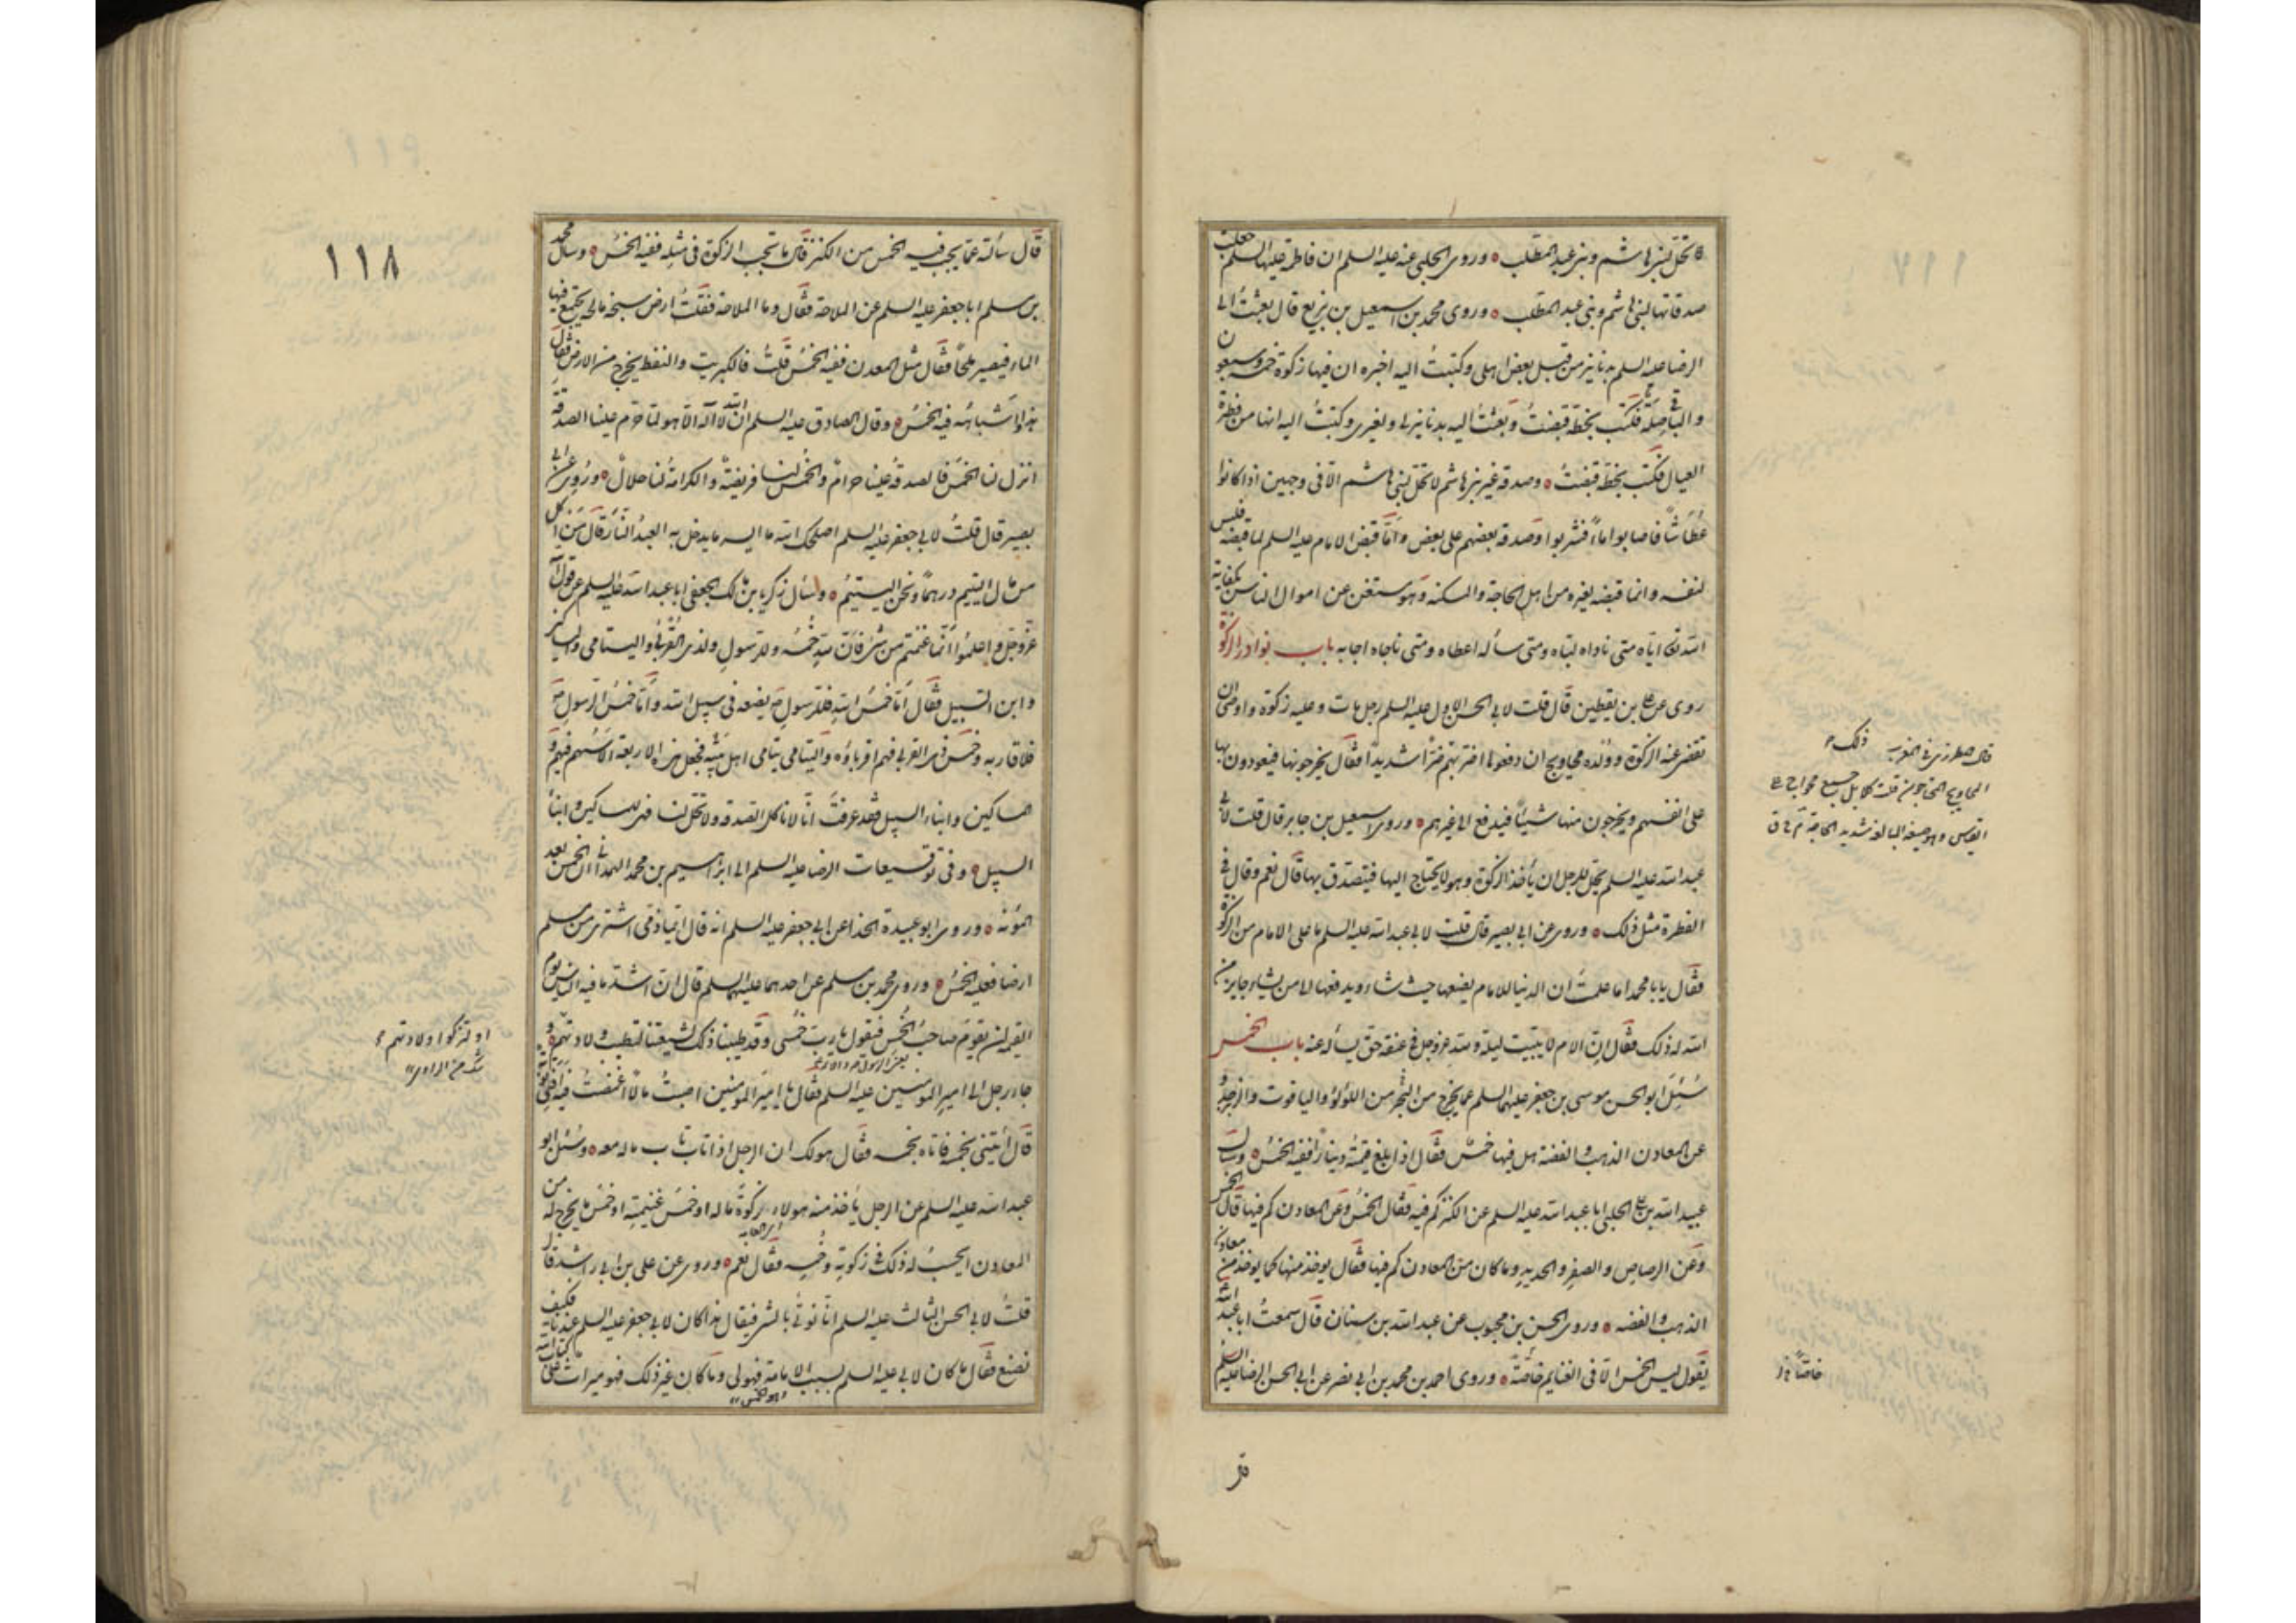 لا تحل لبني هاشم وبني عبد المطلب ه وروى الحلبي عنه عليه السلم ان فاطمة عليها السلم جعلت
صدقاتها لبني هاشم وبني عبد المطلب ه وروى محمد بن اسمعيل بن بزيع قال بعثتُ الى
الرضا عليه السلم بدنانير من قبل بعض اهلي وكتبتُ اليه اخبره ان فيها زكوة خمسة وسبعون
والباقي صلة فكتب بخطه قبضتُ وبعثتُ اليه بدنانير لي ولغيري وكتبتُ اليه انها من فطرة
العيال فكتب بخطه قبضتُ ه وصدقة غير بني هاشم لا تحل لبني هاشم الّا في وجهين اذا كانوا
عُطاشًا فاصابوا ماءً فشربوا وصدقة بعضهم على بعض وامّا قبض الامام عليه السلم لما قبضه فليس
لنفسه وانما قبضه لغيره من اهل الحاجة والمسكنة وهو مستغن عن اموال الناس بكفاية
الله تعالى اياه متى ناداه لبّاه ومتى سأله اعطاه ومتى ناجاه اجابه باب نوادر الزكوة
روى عن علي بن يقطين قال قلت لابي الحسن الاول عليه السلم رجل مات وعليه زكوة واوصى ان
تقضى عنه الزكوة وولده محاويج ان دفعوها اضر بهم ضرًا شديدًا فقال يخرجونها فيعودون بها
على انفسهم ويخرجون منها شيئًا فيدفع الى غيرهم ه وروى اسمعيل بن جابر قال قلت لابي
عبد الله عليه السلم يحل للرجل ان يأخذ الزكوة وهو لا يحتاج اليها فيتصدق بها قال نعم وقال في
الفطرة مثل ذلك ه وروى عن ابي بصير قال قلت لابي عبد الله عليه السلم ما على الامام من الزكوة
فقال يا با محمد اما علمت ان الدنيا للامام يضعها حيث شاء ويدفعها الى من يشاء جايز من
الله له ذلك فقال انّ الامام لا يبيت ليلة ولله عز وجل في عنقه حق يسأله عنه باب الخمس
سُئِل ابو الحسن موسى بن جعفر عليهما السلم عما يخرج من البحر من اللؤلؤ والياقوت والزبرجد و
عن المعادن الذهب والفضة هل فيها خمس فقال اذا بلغ قيمتهُ دينارًا ففيه الخمسُ ه وسأل
عبيد الله بن علي الحلبي ابا عبد الله عليه السلم عن الكنز كم فيه فقال الخمسُ وعن المعادن كم فيها قال الخمس
وعن الرصاص والصفر والحديد وما كان من المعادن كم فيها فقال يوخذ منها كما يوخذ من معادن
الذهب والفضة ه وروى الحسن بن محبوب عن عبد الله بن سنان قال سمعتُ ابا عبد الله
يقول ليس الخمس الّا في الغنايم خاصّةً ه وروى احمد بن محمد بن ابي نصر عن ابي الحسن الرضا عليه السلم
قال المطرزي في المغرب ذلك
المحاويج المحتاجون
خاصّاً خ ل
قر
١١٨
قال سألته عمّا يجب فيه الخمس من الكنز فقال ما تجب الزكوة في مثله ففيه الخمسُ ه وسأل محمد
بن مسلم ابا جعفر عليه السلم عن الملاحة فقال وما الملاحة فقلتُ ارض سبخة مالحة يجتمع فيها
الماء فيصير ملحًا فقال مثل المعدن ففيه الخمسُ قلتُ فالكبريت والنفط يخرج من الارض فقال
هذا واشباهه فيه الخمسُ ه وقال الصادق عليه السلم ان الله لا اله الّا هو لمّا حرّم علينا الصدقة
انزل لنا الخمسَ فالصدقة علينا حرامٌ والخمس لنا فريضةٌ والكرامةُ لنا حلالٌ ه وروى عن ابي
بصير قال قلتُ لابي جعفر عليه السلم اصلحك الله ما ايسر ما يدخل به العبدُ النارَ قال مَن اكل
من مال اليتيم درهمًا ونحن اليتيمُ ه وسأل زكريا بن مالك الجعفي ابا عبد الله عليه السلم عن قول الله
عز وجل واعلموا انّما غنمتم من شئ فانّ لله خُمسُه وللرسول ولذي القربى واليتامى والمساكين
وابن السبيل فقال امّا خمسُ الله فللرسول ص يضعه في سبيل الله وامّا خمسُ الرسول ص
فلاقاربه وخمس ذي القربى فهم اقرباؤه واليتامى يتامى اهل بيته فجعل هذه الاربعة الاسهم فيهم و
المساكين وابناء السبيل فقد عرفتَ انّا لا نأكل الصدقة ولا تحل لنا فهي للمساكين وابناء
السبيل ه وفي توقيعات الرضا عليه السلم الى ابراهيم بن محمد الهمداني ان الخمس بعد
المؤنة ه وروى ابو عبيدة الحذاء عن ابي جعفر عليه السلم انه قال ايّما ذمي اشترى من مسلم
ارضا فعليه الخمسُ ه وروى محمد بن مسلم عن احدهما عليهما السلم قال ان اشدّ ما فيه الناس يوم
القيمة ان يقوم صاحبُ الخُمس فيقول يا ربّ خمسي وقد طيبنا ذلك لشيعتنا لتطيب ولادتهم ه و
جاء رجل الى امير المومنين عليه السلم فقال يا امير المومنين اصبتُ مالًا اغمضتُ فيه افلي توبة
قال ائتني بخمسه فاتاه بخمسه فقال هو لك ان الرجل اذا تاب تاب ماله معه ه وسُئل ابو
عبد الله عليه السلم عن الرجل يأخذ منه هولاء زكوةَ ماله او خمسَ غنيمته او خمسَ ما يخرج له من
المعادن ايحسبُ له ذلك في زكوته وخُمسه فقال نعم ه وروى عن علي بن ابي راشد قال
قلتُ لابي الحسن الثالث عليه السلم انّا نُوتى بالشئ فيقال هذا كان لابي جعفر عليه السلم عندنا فكيف
نصنع فقال ما كان لابي عليه السلم بسبب الامامة فهو لي وما كان غير ذلك فهو ميراث على كتاب الله
وهو الخمس
او لتزكوا ولادتهم
شك من الراوي